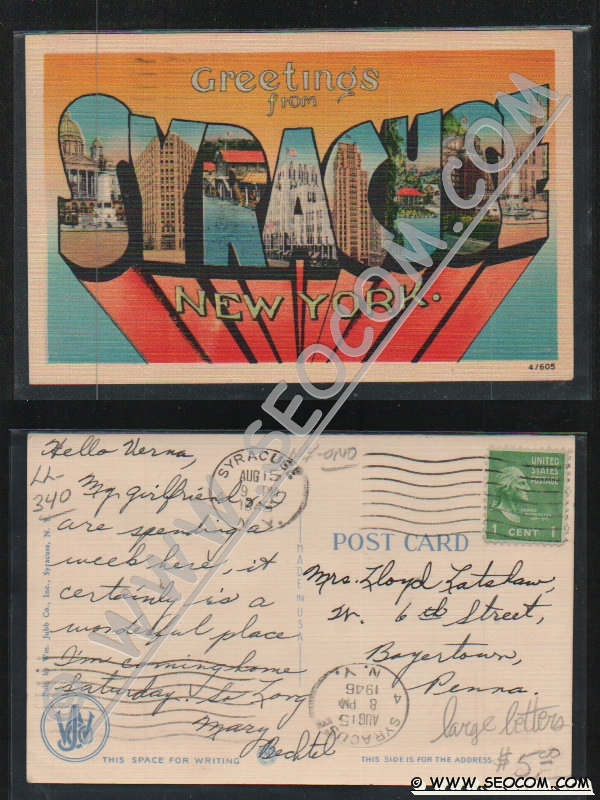 Greetings
from
SYRACUSE
NEW YORK.
47605
WWW.SEOCOM.COM
Hello Verna,
LL
340
My girlfriend & I
are spending a
week here, it
certainly is a
wonderful place
I'm coming home
Saturday. So Long
Mary
Bechtel
SYRACUSE
AUG 15
N.Y.
UNITED
STATES
POSTAGE
1 CENT 1
POST CARD
MADE IN USA
Pub. by Wm. Jubb Co., Inc., Syracuse, N. Y.
Mrs. Lloyd Latshaw,
W. 6th Street,
Boyertown,
Penna.
SYRACUSE 4
N.Y.
AUG 15
8 PM
1946
large letters
$5.00
THIS SPACE FOR WRITING
THIS SIDE IS FOR THE ADDRESS
© WWW.SEOCOM.COM